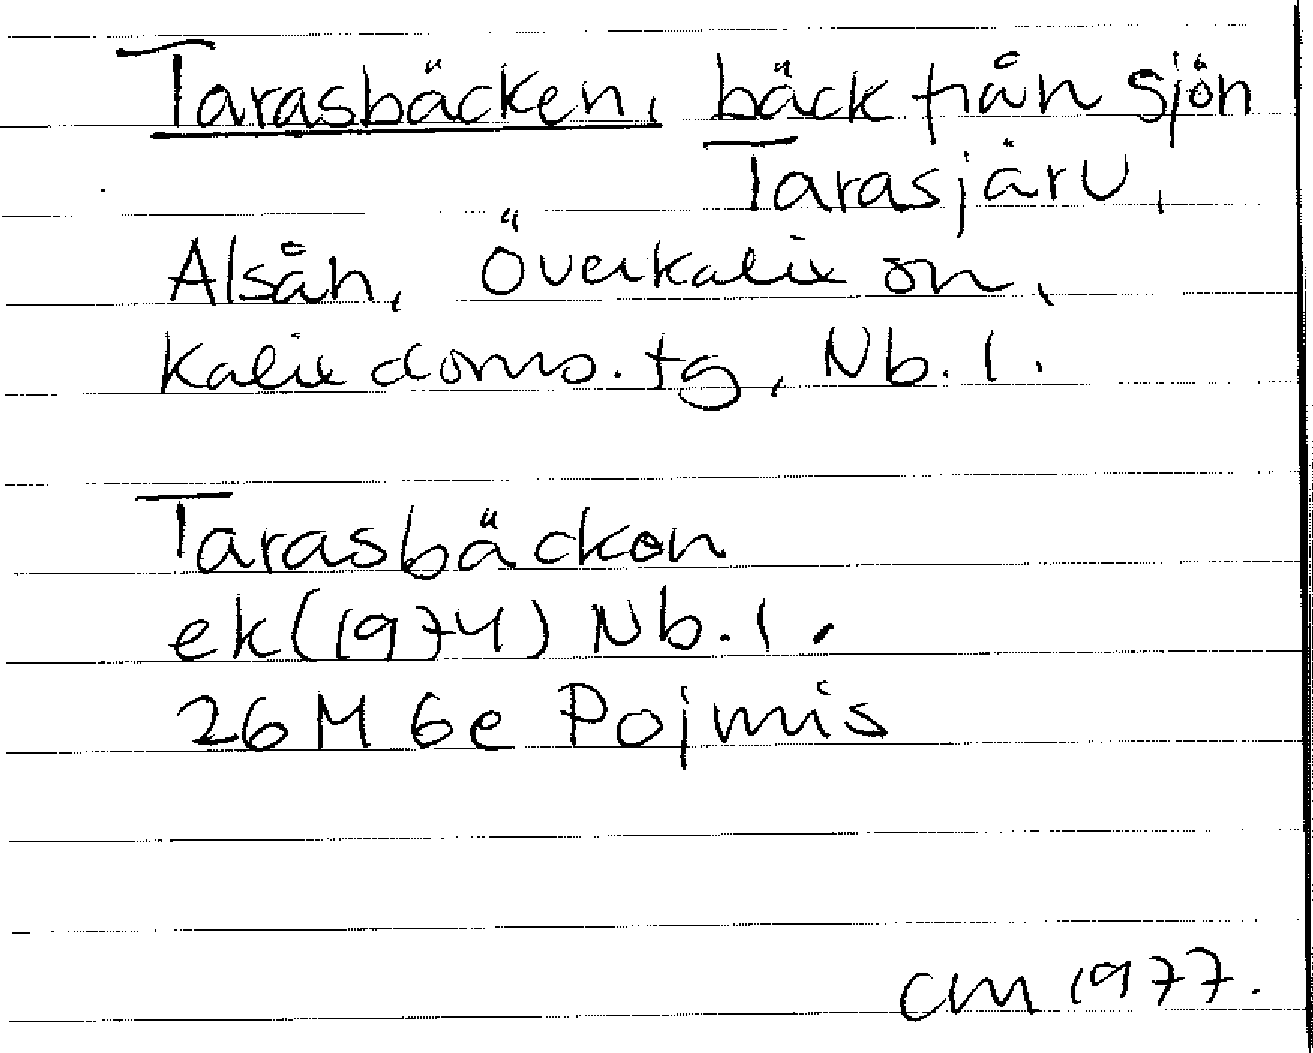 Tarasbäcken, bäck från sjön
Tarasjärv,
Alsån, Överkalix sn,
Kalix doms. tg, Nb. l.
Tarasbäcken
ek (1974) Nb. l.
26 M 6e Pojmis
CM 1977.